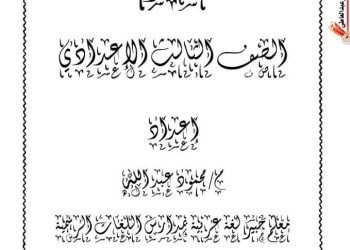 الصف الثالث الإعدادي
إعداد
م/ محمود عبد اللاه
معلم خبير لغة عربية بمدارس اللغات الرسمية